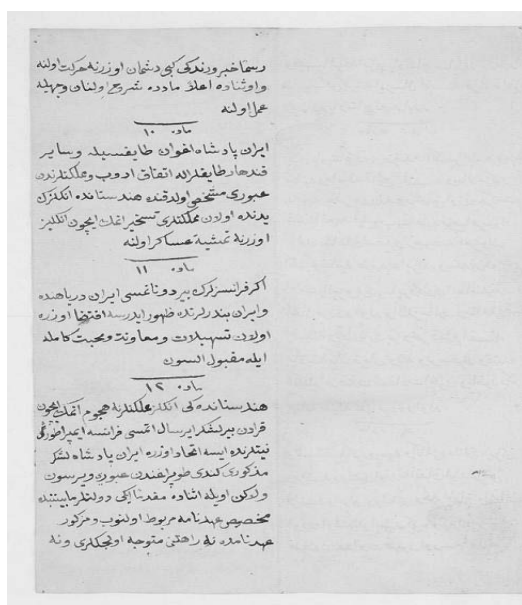 رسما خبر ویرندكی كبی دشمان اوزرنه حركت اولنه
و اوشناده اعلاق ماده شرح اولنان وجهیله
عمل اولنه
ماده ١٠
ایران پادشاه اغوان طایفسیله و سایر
قندهار طایفلر اله اتفاق ادوب و مملكتلرندن
عبوری مشخص اولدقده هندستانده انكلزك
یدنده اولان مملكتلری تسخیر اتمك ایچون انكلیز
اوزرنه تمشیة عساكر اولنه
ماده ١١
اكر فرانسزلرك بیر دوناغسی ایران دریاهنده
و ایران بندرلرنده ظهور ایدرسه اقتضا اوزره
اولان تسهیلات و معاونت و محبت كامله
ایله مقبول السون
ماده ١٢
هندستانده كی انكلز مملكتلرنه هجوم اتمك ایچون
قرادن بیر لشكر ایرسال اتمسی فرانسه ایمپراطورنكی
نیتلرنده ایسه اتحاد اوزره ایران پادشاه لشكر
مذكوری كندی طوپراغندن عبورن ویرسون
ولكن اویله اشاده مقدنا ایكی دولتلر مابیننده
مخصوص عهدنامه مربوط اولنوب و مزكور
عهدنامده نه راهتن متوجه اولجكلری و نه